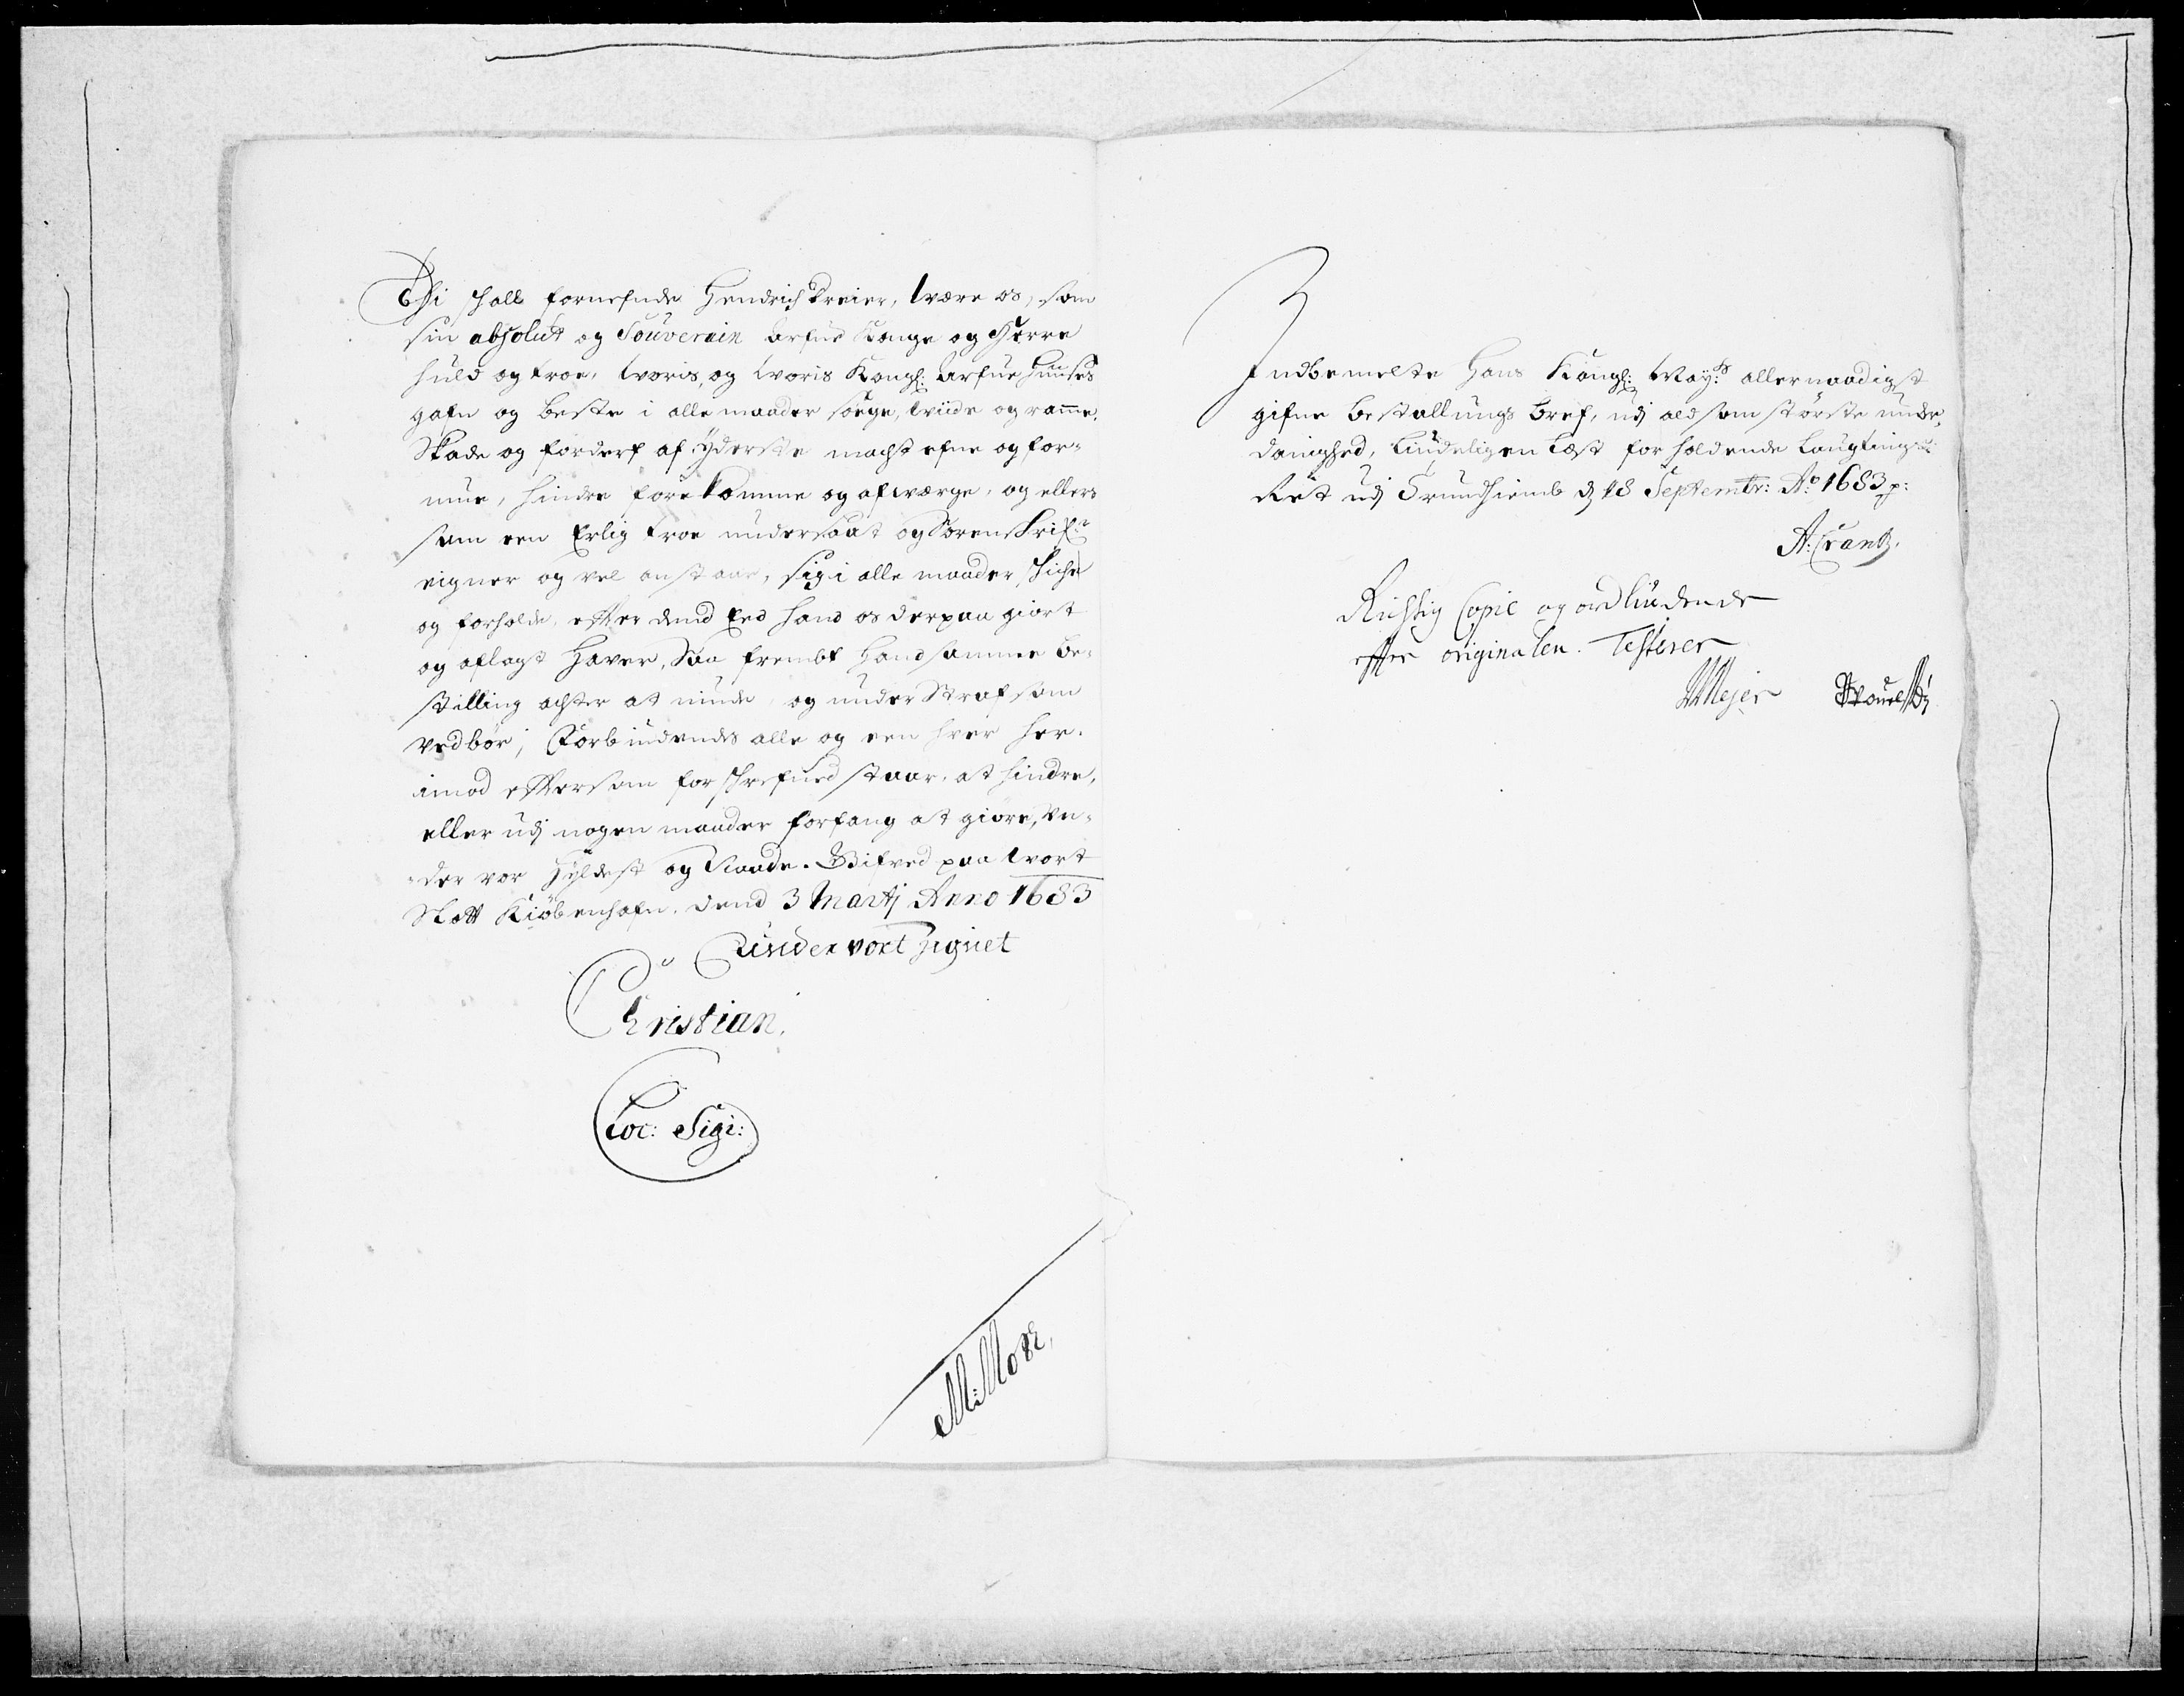 Thi schall fornefnde Hendrich Dreier, være os, som
sin absolut og Souverain arfue Konge og Herre
huld og troe, woris, og woris Kongl: Arfue Huuses
gafn og beste i alle maader söege, wiide og ramme,
Skade og forderf af yderste macht efne og for-
mue, hindre forekomme og afwærge, og ellers
som een Erlig troe undersaat og Sorenskrif:r
eigner og vel anstaar, sig i alle maader schiche
og forholde, effter dend Eed hand os derpaa giort
og aflagt Haver, Saa frembt Hand samme be-
stilling agter at niude, og under Straf som
vedbör, Forbiudendes alle og een hver her-
imod eftersom forschrefued staar, at hindre,
eller udj nogen maader forfang at giöre, Un-
der vor Hyldest og Naade. Gifved paa Wort
Slott Kiöbenhafn. dend 3 Martij Anno 1683
Under vort Zignet
Christian.
Loc: Sigi:
M: Moþe,
Indbemelte Hans Kongl: May:ts allernaadigst
gifne bestallungs bref, udj ald som störste under-
danighed, liudeligen læst for holdende Laugtings
Ret udj Trundhiemb d 18 Septembr: Ao 1683 p:
A: Crantz.
Richtig Copie og ordliudende
effter originalen. Testerer
Mejer